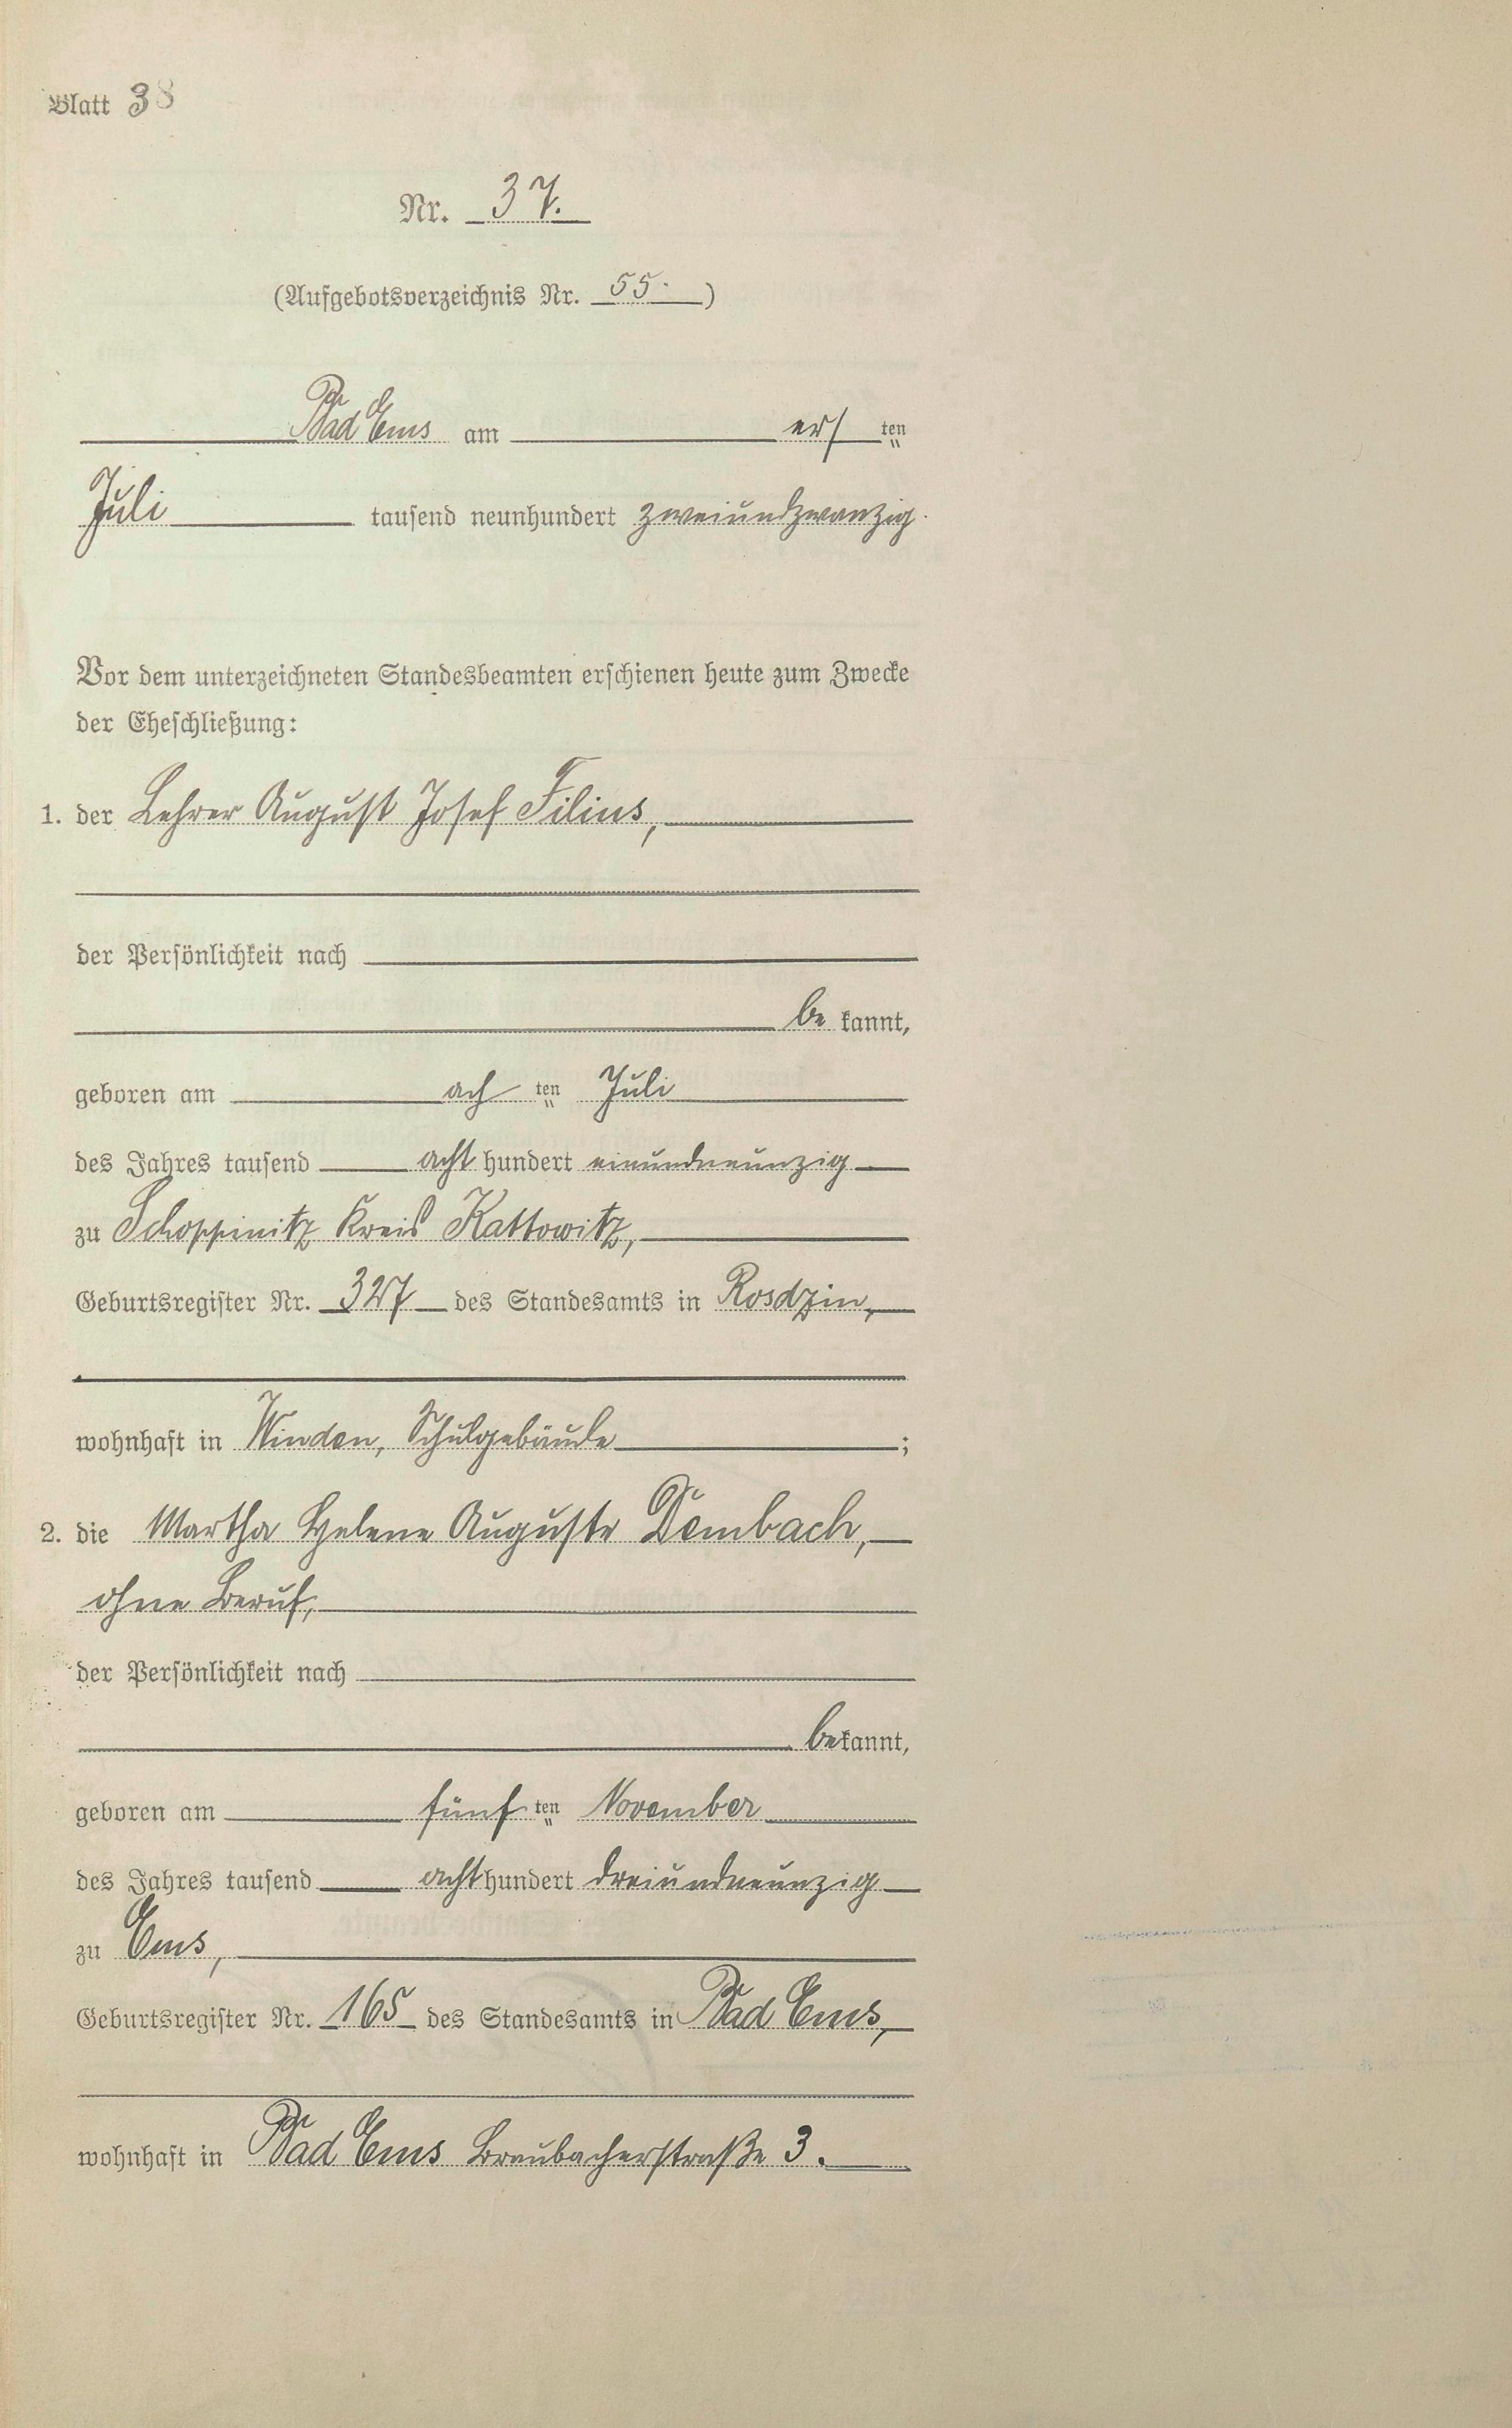 Blatt 38
Nr. 37.
(Aufgebotsverzeichnis Nr. 55.)
Bad Ems am ersten
Juli tausend neunhundert zweiundzwanzig.
Vor dem unterzeichneten Standesbeamten erschienen heute zum Zwecke
der Eheschließung:
1. der Lehrer August Josef Filius,
der Persönlichkeit nach
bekannt,
geboren am achten Juli
des Jahres tausend achthundert einundneunzig
zu Schoppinitz Kreis Kattowitz,
Geburtsregister Nr. 327 des Standesamts in Rosdzin,
wohnhaft in Winden, Schulgebäude;
2. die Martha Helene Auguste Dembach,
ohne Beruf,
der Persönlichkeit nach
bekannt,
geboren am fünften November
des Jahres tausend achthundert dreiundneunzig
zu Ems,
Geburtsregister Nr. 165 des Standesamts in Bad Ems,
wohnhaft in Bad Ems Braubacherstraße 3.